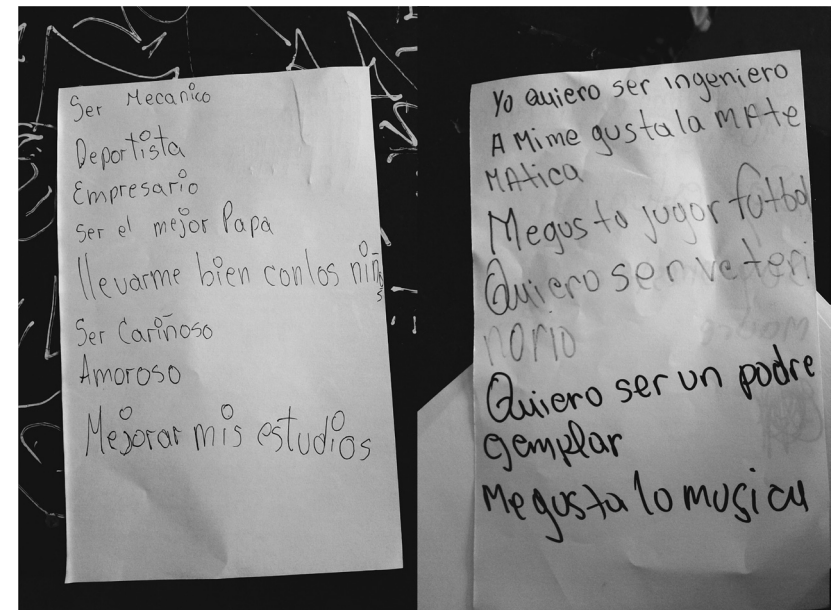 Ser Mecanico
Deportista
Empresario
Ser el mejor Papa
llevarme bien con los niños
Ser Cariñoso
Amoroso
Mejorar mis estudios
Yo quiero ser ingeniero
A Mi me gusta la mAte
MAtica
Me gusta jugar futbol
Quiero ser veteri
nario
Quiero ser un padre
ejemplar
Me gusta la musica